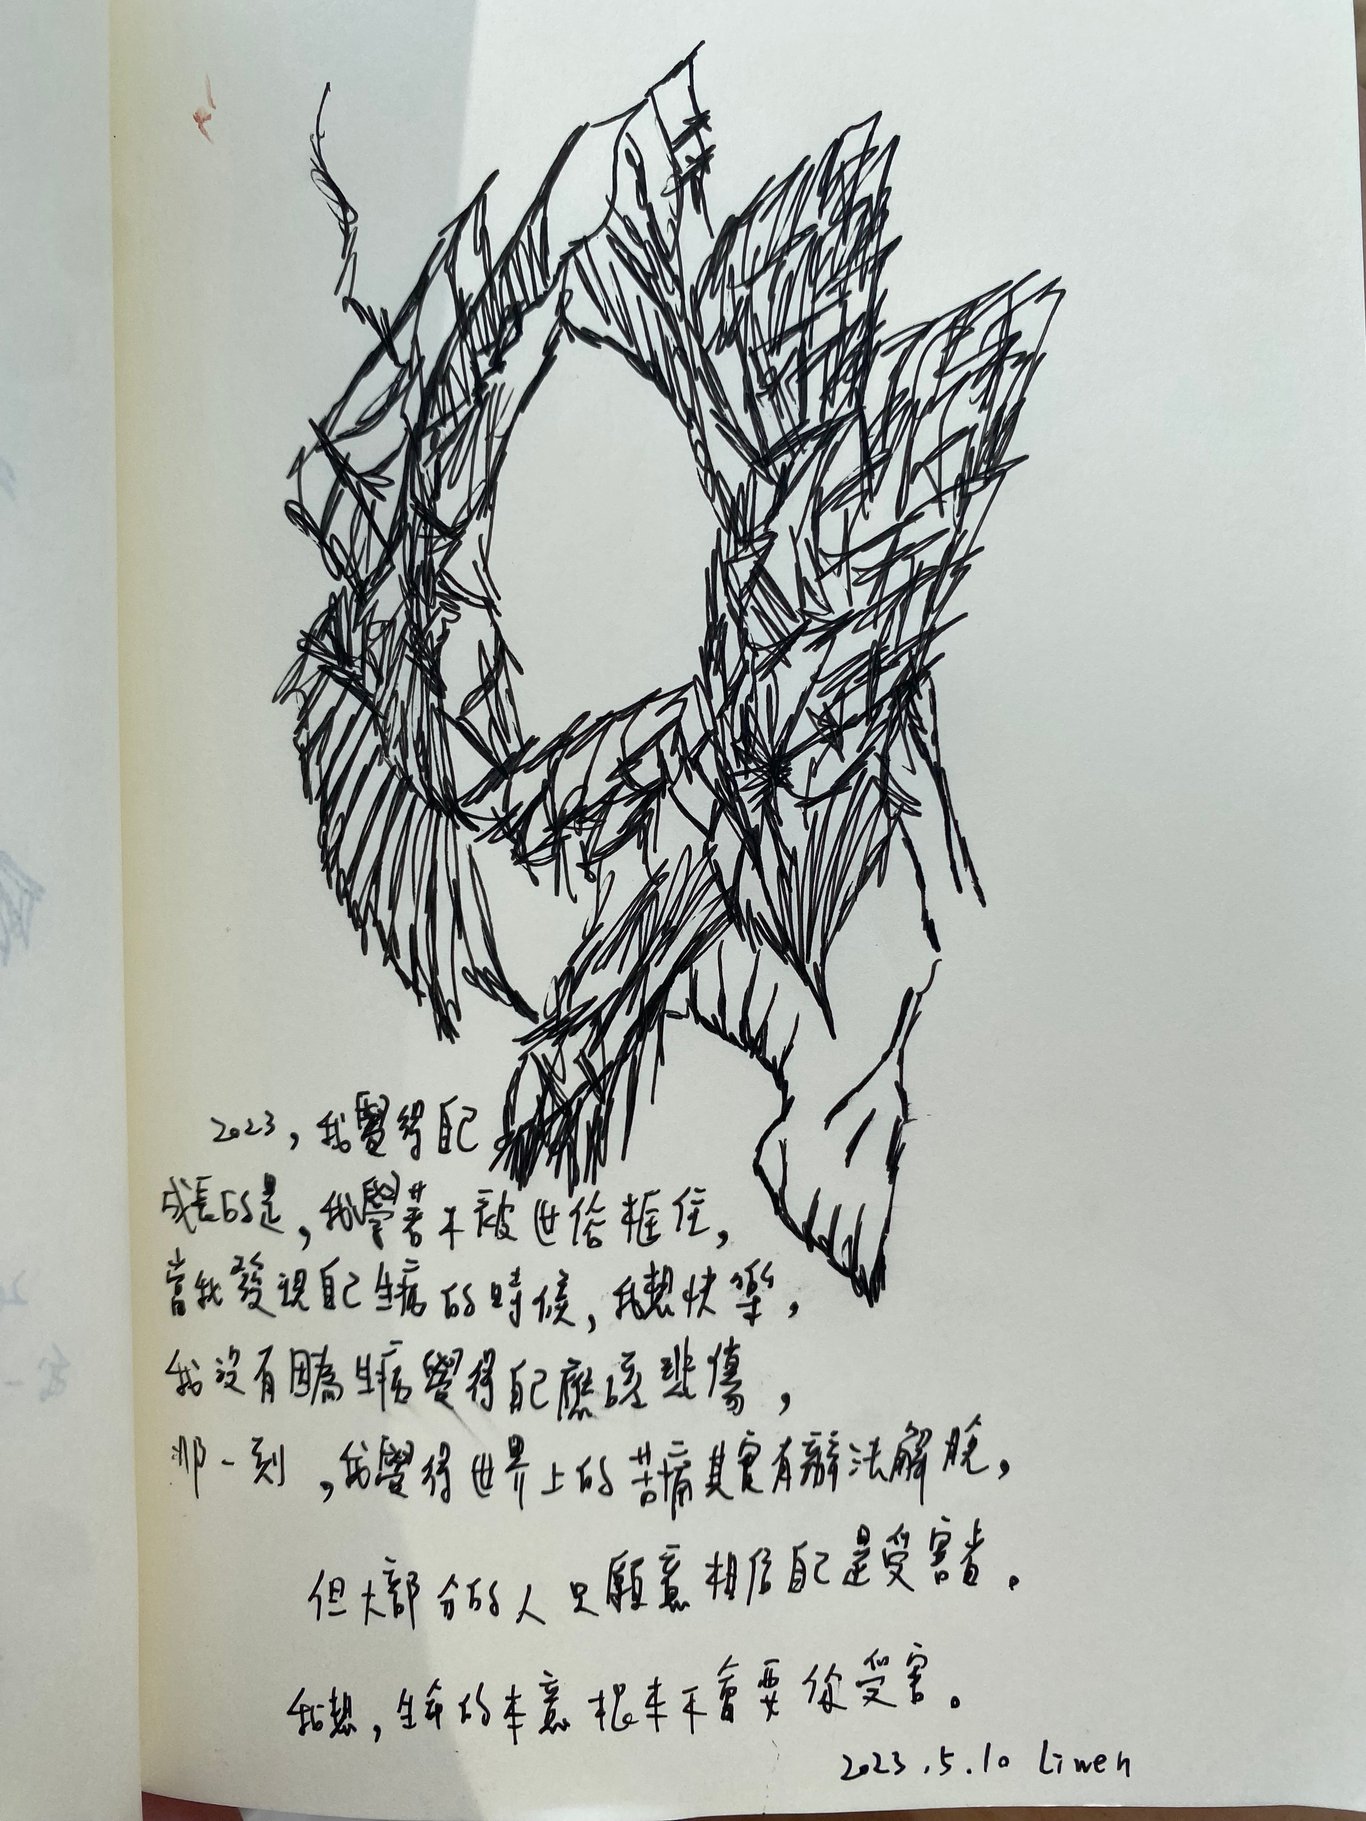 2023，我覺得自己
成長的是，我學著不被世俗框住，
當我發現自己生病的時候，我想快樂，
我沒有因為生病覺得自己應該悲傷，
那一刻，我覺得世界上的苦痛其實有辦法解脫，
但大部分的人只願意相信自己是受害者。
我想，生命的本意根本不會要你受害。
2023.5.10 Liwen